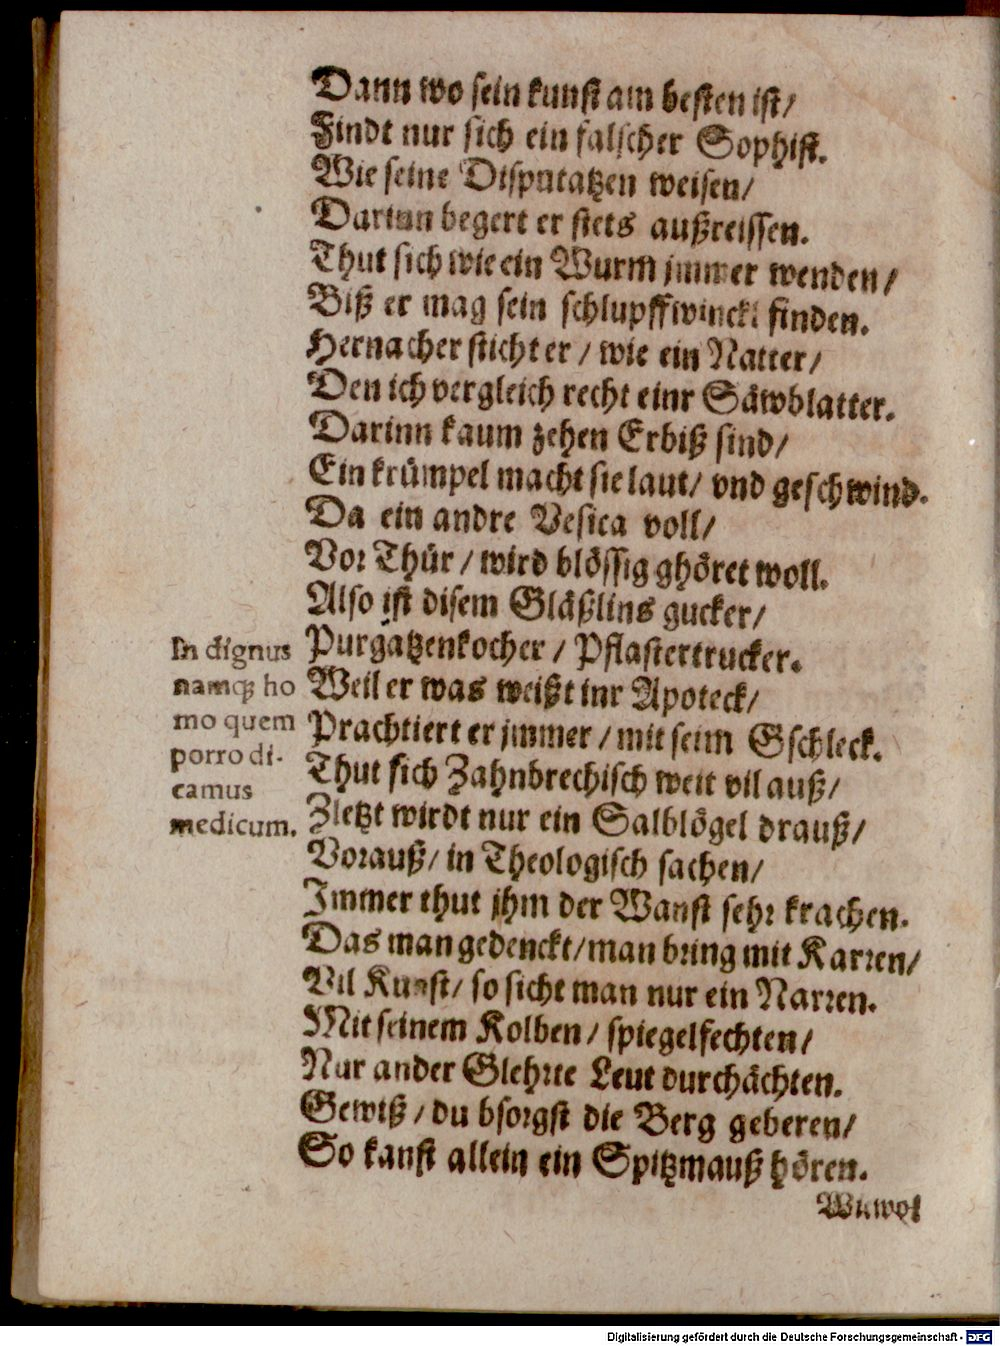 Dann wo sein kunst am besten ist/
Findt nur sich ein falscher Sophist.
Wie seine Disputatzen weisen/
Darinn begert er stets außreissen.
Thut sich wie ein Wurm jmmer wenden/
Biß er mag sein schlupffwinckl finden.
Hernacher sticht er / wie ein Natter/
Den ich vergleich recht einr Säwblatter.
Darinn kaum zehen Erbiß sind/
Ein krümpel macht sie laut/ vnd geschwind.
Da ein andre Vesica voll/
Vor Thür / wird blössig ghöret woll.
Also ist disem Gläßlins gucker/
Purgatzenkocher / Pflastertrucker.
Weil er was weißt inr Apoteck/
Prachtiert er jmmer / mit seim Gschleck.
Thut sich Zahnbrechisch weit vil auß/
Zletzt wirdt nur ein Salblögel drauß/
Vorauß/ in Theologisch sachen/
Immer thut jhm der Wanst sehr krachen.
Das man gedenckt/ man bring mit Karren/
Vil Kunst/ so sicht man nur ein Narren.
Mit seinem Kolben / spiegelfechten/
Nur ander Glehrte Leut durchächten.
Gewiß / du bsorgst die Berg geberen/
So kanst allein ein Spitzmauß hören.
In dignus
namq; ho
mo quem
porro di-
camus
medicum.
Digitalisierung gefördert durch die Deutsche Forschungsgemeinschaft - DFG